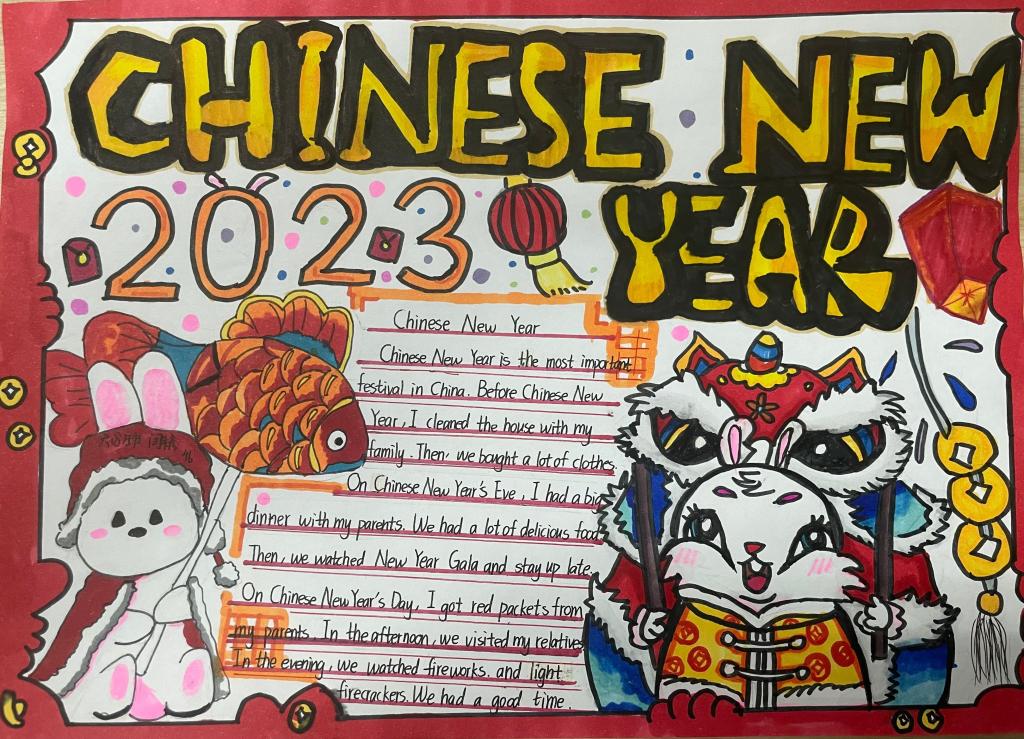 CHINESE NEW
YEAR
2023
Chinese New Year
Chinese New Year is the most important
festival in China. Before Chinese New
Year, I cleaned the house with my
family. Then, we bought a lot of clothes.
On Chinese New Year's Eve, I had a big
dinner with my parents. We had a lot of delicious food.
Then, we watched New Year Gala and stay up late.
On Chinese New Year's Day, I got red packets from
my parents. In the afternoon, we visited my relatives.
In the evening, we watched fireworks. and light
firecrackers. We had a good time.